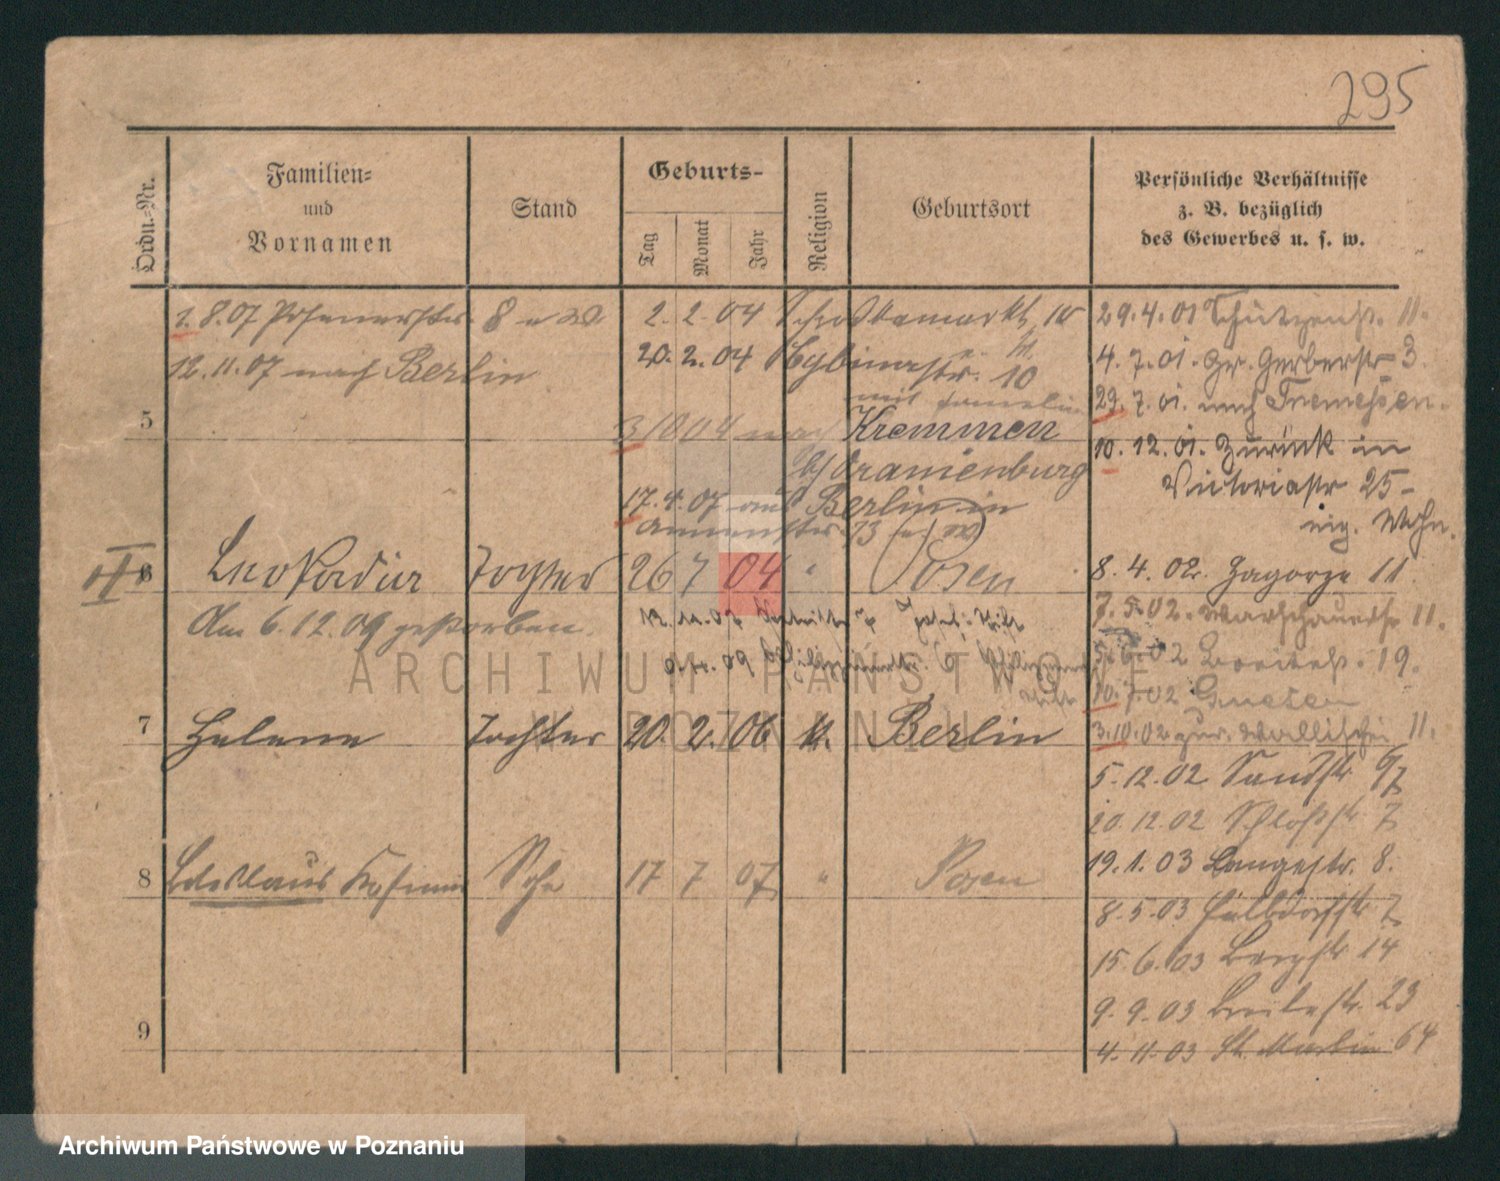 295
Ordn.-Nr.
Familien-
und
Vornamen
Stand
Geburts-
Tag
Monat
Jahr
Religion
Geburtsort
Persönliche Verhältnisse
z. B. bezüglich
des Gewerbes u. s. w.
1. 8. 07 Posenerstr. 8
12. 11. 07 nach Berlin
2. 2. 04
20. 2. 04 10
mit Familie
3/10 04 nach Kremmen
b/ Oranienburg
17. 4. 07 aus Berlin in
5
29. 4. 01 Schützenstr. 11.
4. 7. 01. Gr. Gerberstr 3.
29. 7. 01. nach Tremessen.
10. 12. 01. Zurück in
Victoriastr 25
eig. Wohn.
6 Leokadia Tochter 26 7 04 " Posen
Am 6. 12. 09 gestorben.
8. 4. 02. Zagorze 11
7. 5. 02. Warschauerstr 11.
5. 6. 02 Breitestr. 19.
10. 7. 02 Gnesen
7 Helene Tochter 20. 2. 06 k. Berlin
3. 10. 02 zur. Wallischei 11.
5. 12. 02 Sandstr.
20. 12. 02 Schloßstr 7
8 Ladislaus Kasimir Sohn 17 7 07 " Posen
19. 1. 03 Langestr. 8.
8. 5. 03
15. 6. 03 Bergstr 14
9. 9. 03 Breitestr. 23
9
4. 11. 03 St. Martin 64
ARCHIWUM PAŃSTWOWE
W POZNANIU
Archiwum Państwowe w Poznaniu